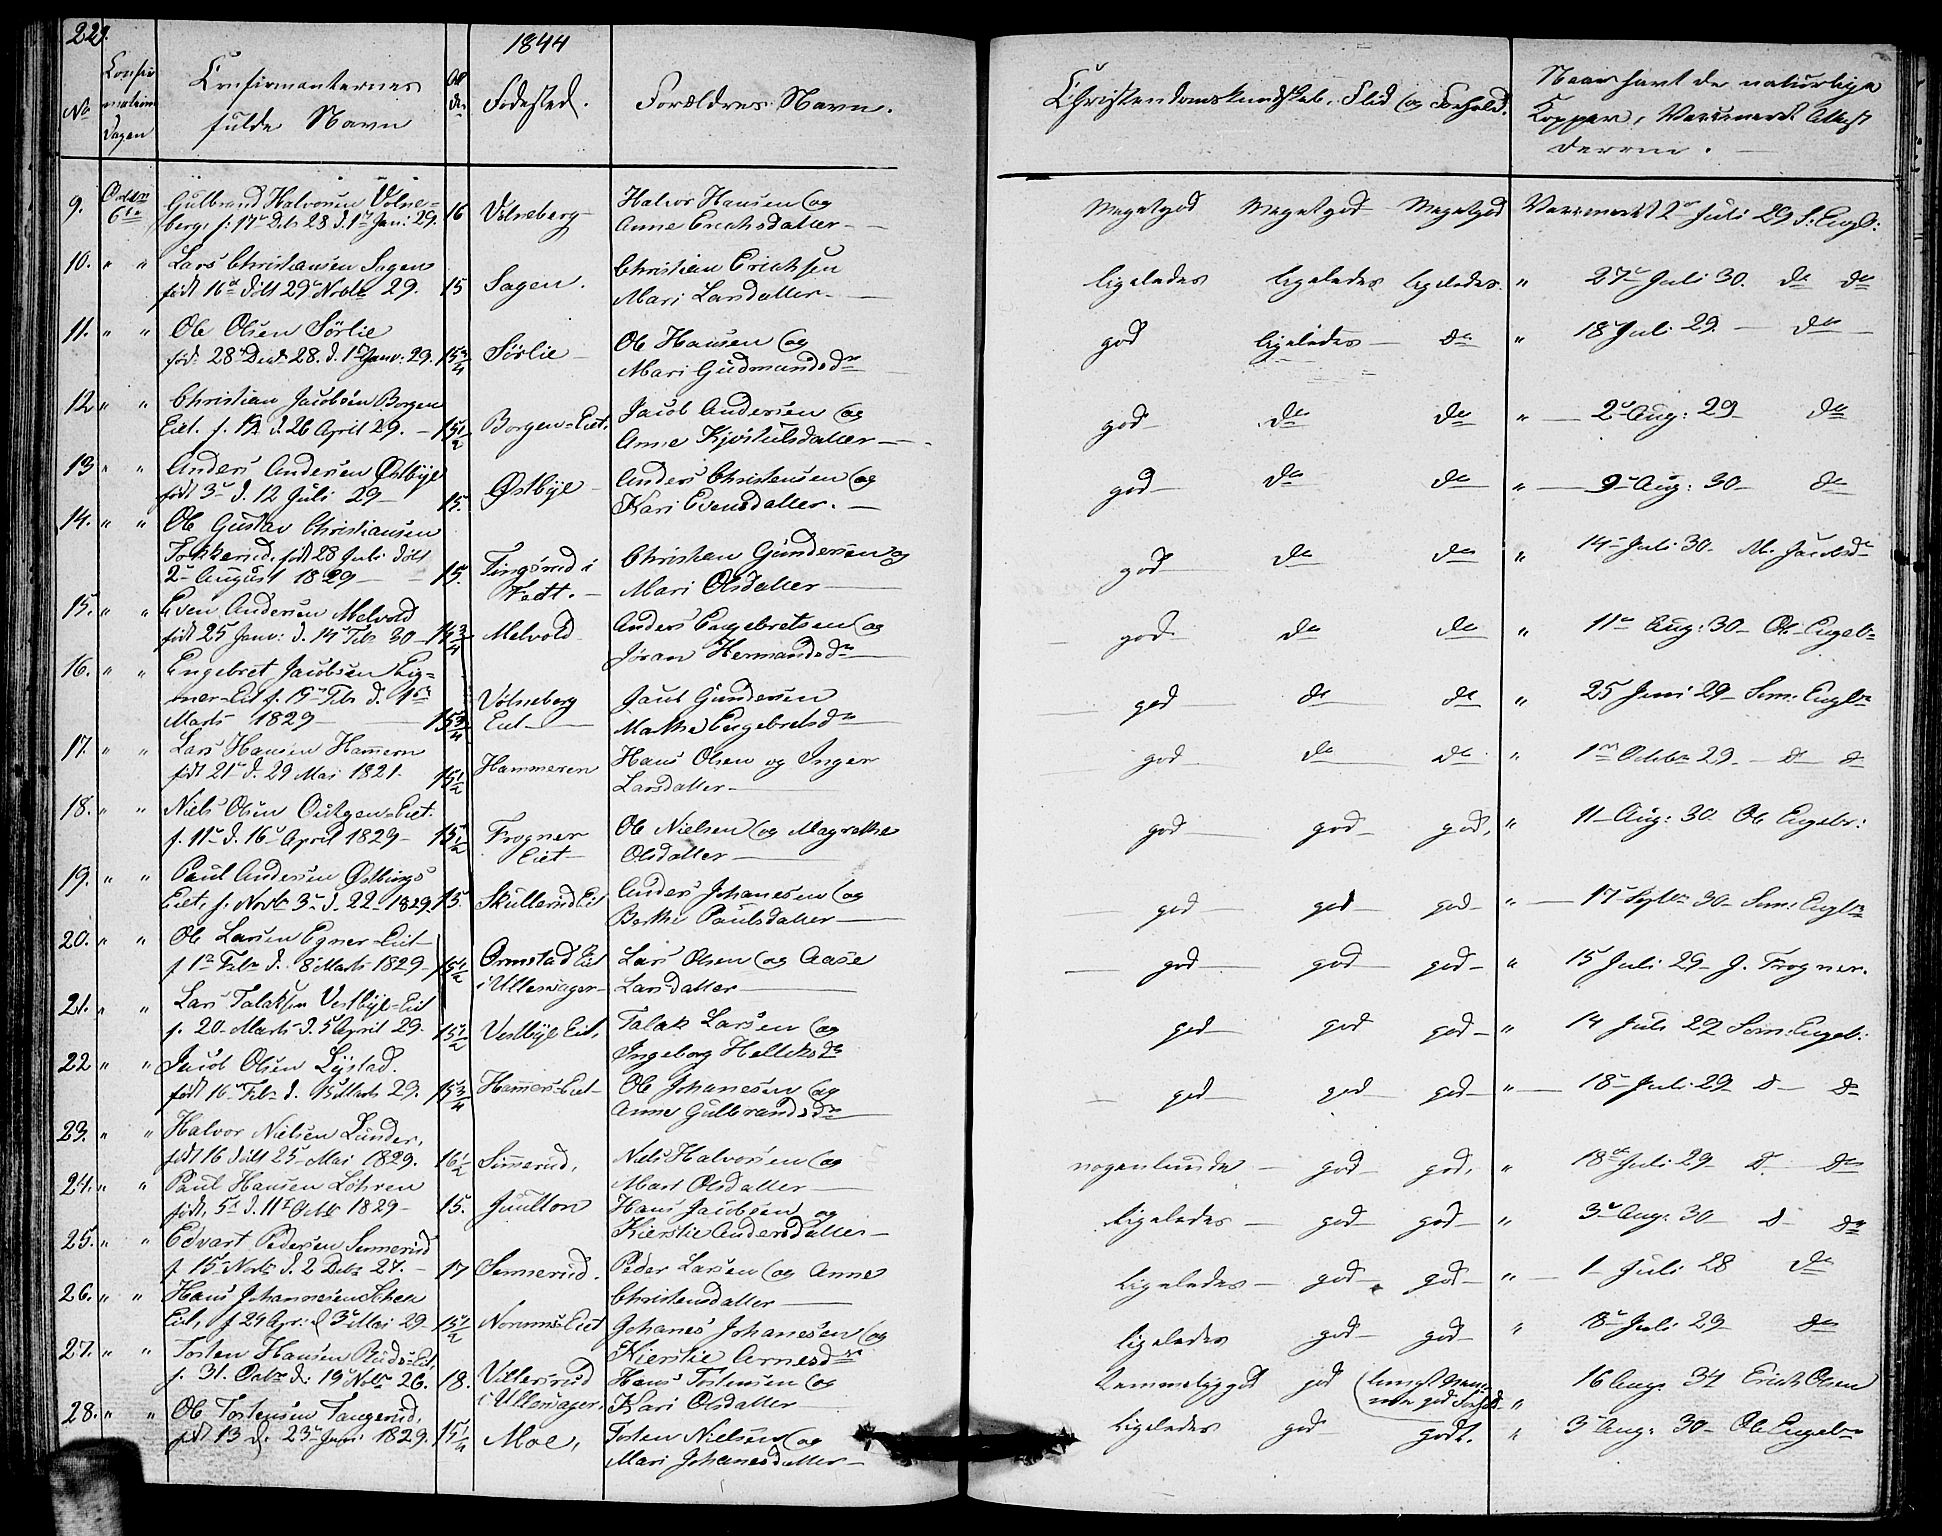 229.
1844
No
Confir
mations
Dagen
Confirmanternes
fulde Navn
Al
der
Fødested.
Forældres Navn.
Christendomskundskab, Flid og Forhold.
Naar havt de naturlige
Kopper, Vaccineret Attest
derom.
9. Octbr 6te Gulbrand Halvorsen Volne=
berg, f: 17de Deb 28 d. 1ste Jan: 29. 16 Volneberg Halvor Hansen og
Anne Erichsdatter Megetgod Megetgod Megetgod Vaccineret 2de Juli 29 S: Engb:
10. " " Lars Christiansen Sagen
født 16de døbt 29de Novbr 29. 15 Sagen. Christian Erichsen
Mari Larsdatter ligeledes ligeledes ligeledes. " 27de Juli 30. do do
11. " " Ole Olsen Sørlie
født 28de Decbr 28. d. 1ste Janv: 29. 15 3/4 Sørlie Ole Hansen og
Mari Gudmundsdr god ligeledes do " 18 Juli 29. do
12 " " Christian Jacobsen Borgen
Eiet. f. 12 d. 26 April 29. 15 1/2 Borgen=Eiet. Jacob Andersen og
Anne Kjøstulsdatter god do do " 2de Aug: 29 do
13 " " Anders Andersen Østbye
født 3de d. 12 Juli 29 15. Østbye Anders Christensen og
Kari Evensdatter. god do do " 9de Aug: 30 do
14. " " Ole Gustav Christiansen
født 28 Juli døbt
2de August 1829 15. i
Christian Gundersen og
Mari Olsdatter god do do " 14de Juli 30. M. Jacobsdr
15. " " Even Andersen Melvold
født 25 Janv: d. 14de Febr 30 14 3/4 Melvold Anders Engebretsen og
Jøran Hermandsdr god do do " 11de Aug: 30 Ole Engeb
16. " " Engebret Jacobsen Eig=
ner=Eiet f. 19de Febr d. 1ste
Marts 1829 15 3/4 Volneberg
Eiet Gundersen
Marthe Engebretsdr god do do " 25 Juni 29 Sim: Engbr
17. " " Lars Hansen Hammern
født 21de d. 29 Mai 1821. 15 1/2 Hammeren Hans Olsen og Inger
Larsdatter god do do " 1ste Octobr 29. do do
18. " " Niels Olsen =Eiet.
f. 11de d. 16de April 1829 15 1/2 Frogner
Eiet Ole Nielsen og Magrethe
Olsdatter god god god, " 11 Aug: 30 Ole Engebr:
19. " " Paul Andersen Østbings
Eiet, f. Novbr 3de d. 22 1829. 15. Skullerud Eiet Anders Johanesen og
Berthe Paulsdatter god god god " 17de Septbr 30 Sim: Engbr
20. " " Ole Larsen Egner=Eiet
f 1ste Febr d. 8 Marts 1829 15 1/2 Ormstad Eiet
i Ullensager Lars Olsen og Aase
Larsdatter god god god " 15 Juli 29 J. Frogner.
21. " " Lars Talaksen Vestbye=Eiet
f. 20. Marts d. 5 April 29. 15 1/2 Vestbye Eiet, Talak Larsen og
Ingeborg Helleksdr god god god " 14 Juli 29 Sim: Engeb:
22 " " Jacob Olsen Lystad.
født 16de Febr d. Marts 29. 15 3/4 Hammers=Eiet Ole Johanesen og
Anne Gulbrandsdr god god god " 18de Juli 29 do do
23. " " Halvor Nielsen Lunder,
født 16 døbt 25 Mai 1829. 16 1/2 Simerud, Niels Halvorsen og
Mari Olsdatter nogenlunde god god, " 18de Juli 29 do do
24. " " Paul Hansen Løhren
født, 5te d. 11te Octbr 1829 15. Juulton Hans Jacobsen og
Kierstie Andersdatter ligeledes god god " 3de Aug: 30 do do
25. " " Edvart Pedersen Sennerud
f 15 Novbr d. 2 Debr 27. 17 Sennerud. Peder Larsen og Anne
Christensdatter ligeledes god god " 1 Juli 28 do
26. " " Hans Johannesen
Eiet, f 24 Apr: d 3de Mai 29 15 1/2 Norums=Eiet Johanes Johanesen og
Kierstie Arnesdr ligeledes god god " 8de Juli 29 do
27. " " Tosten Hansen Ruds=Eiet,
f. 31. Octbr d: 19 Nobr 26. 18. Villersrud
i Ullensager, Hans Tostensen og
Kari Olsdatter temmeliggod god " 16 Aug: 34 Erich Olsen
28. " " Ole Tostensen Tangerud,
født 13 d. 23de Juni 1829. 15 1/4 Moe, Tosten Nielsen og
Mari Johanesdatter ligeledes god godt. " 3de Aug: 30 Ole Engebr